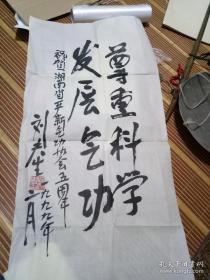 尊重科学
发展气功
祝贺湖南省平新气功协会五周年
一九九九年
二月
孔夫子旧书网